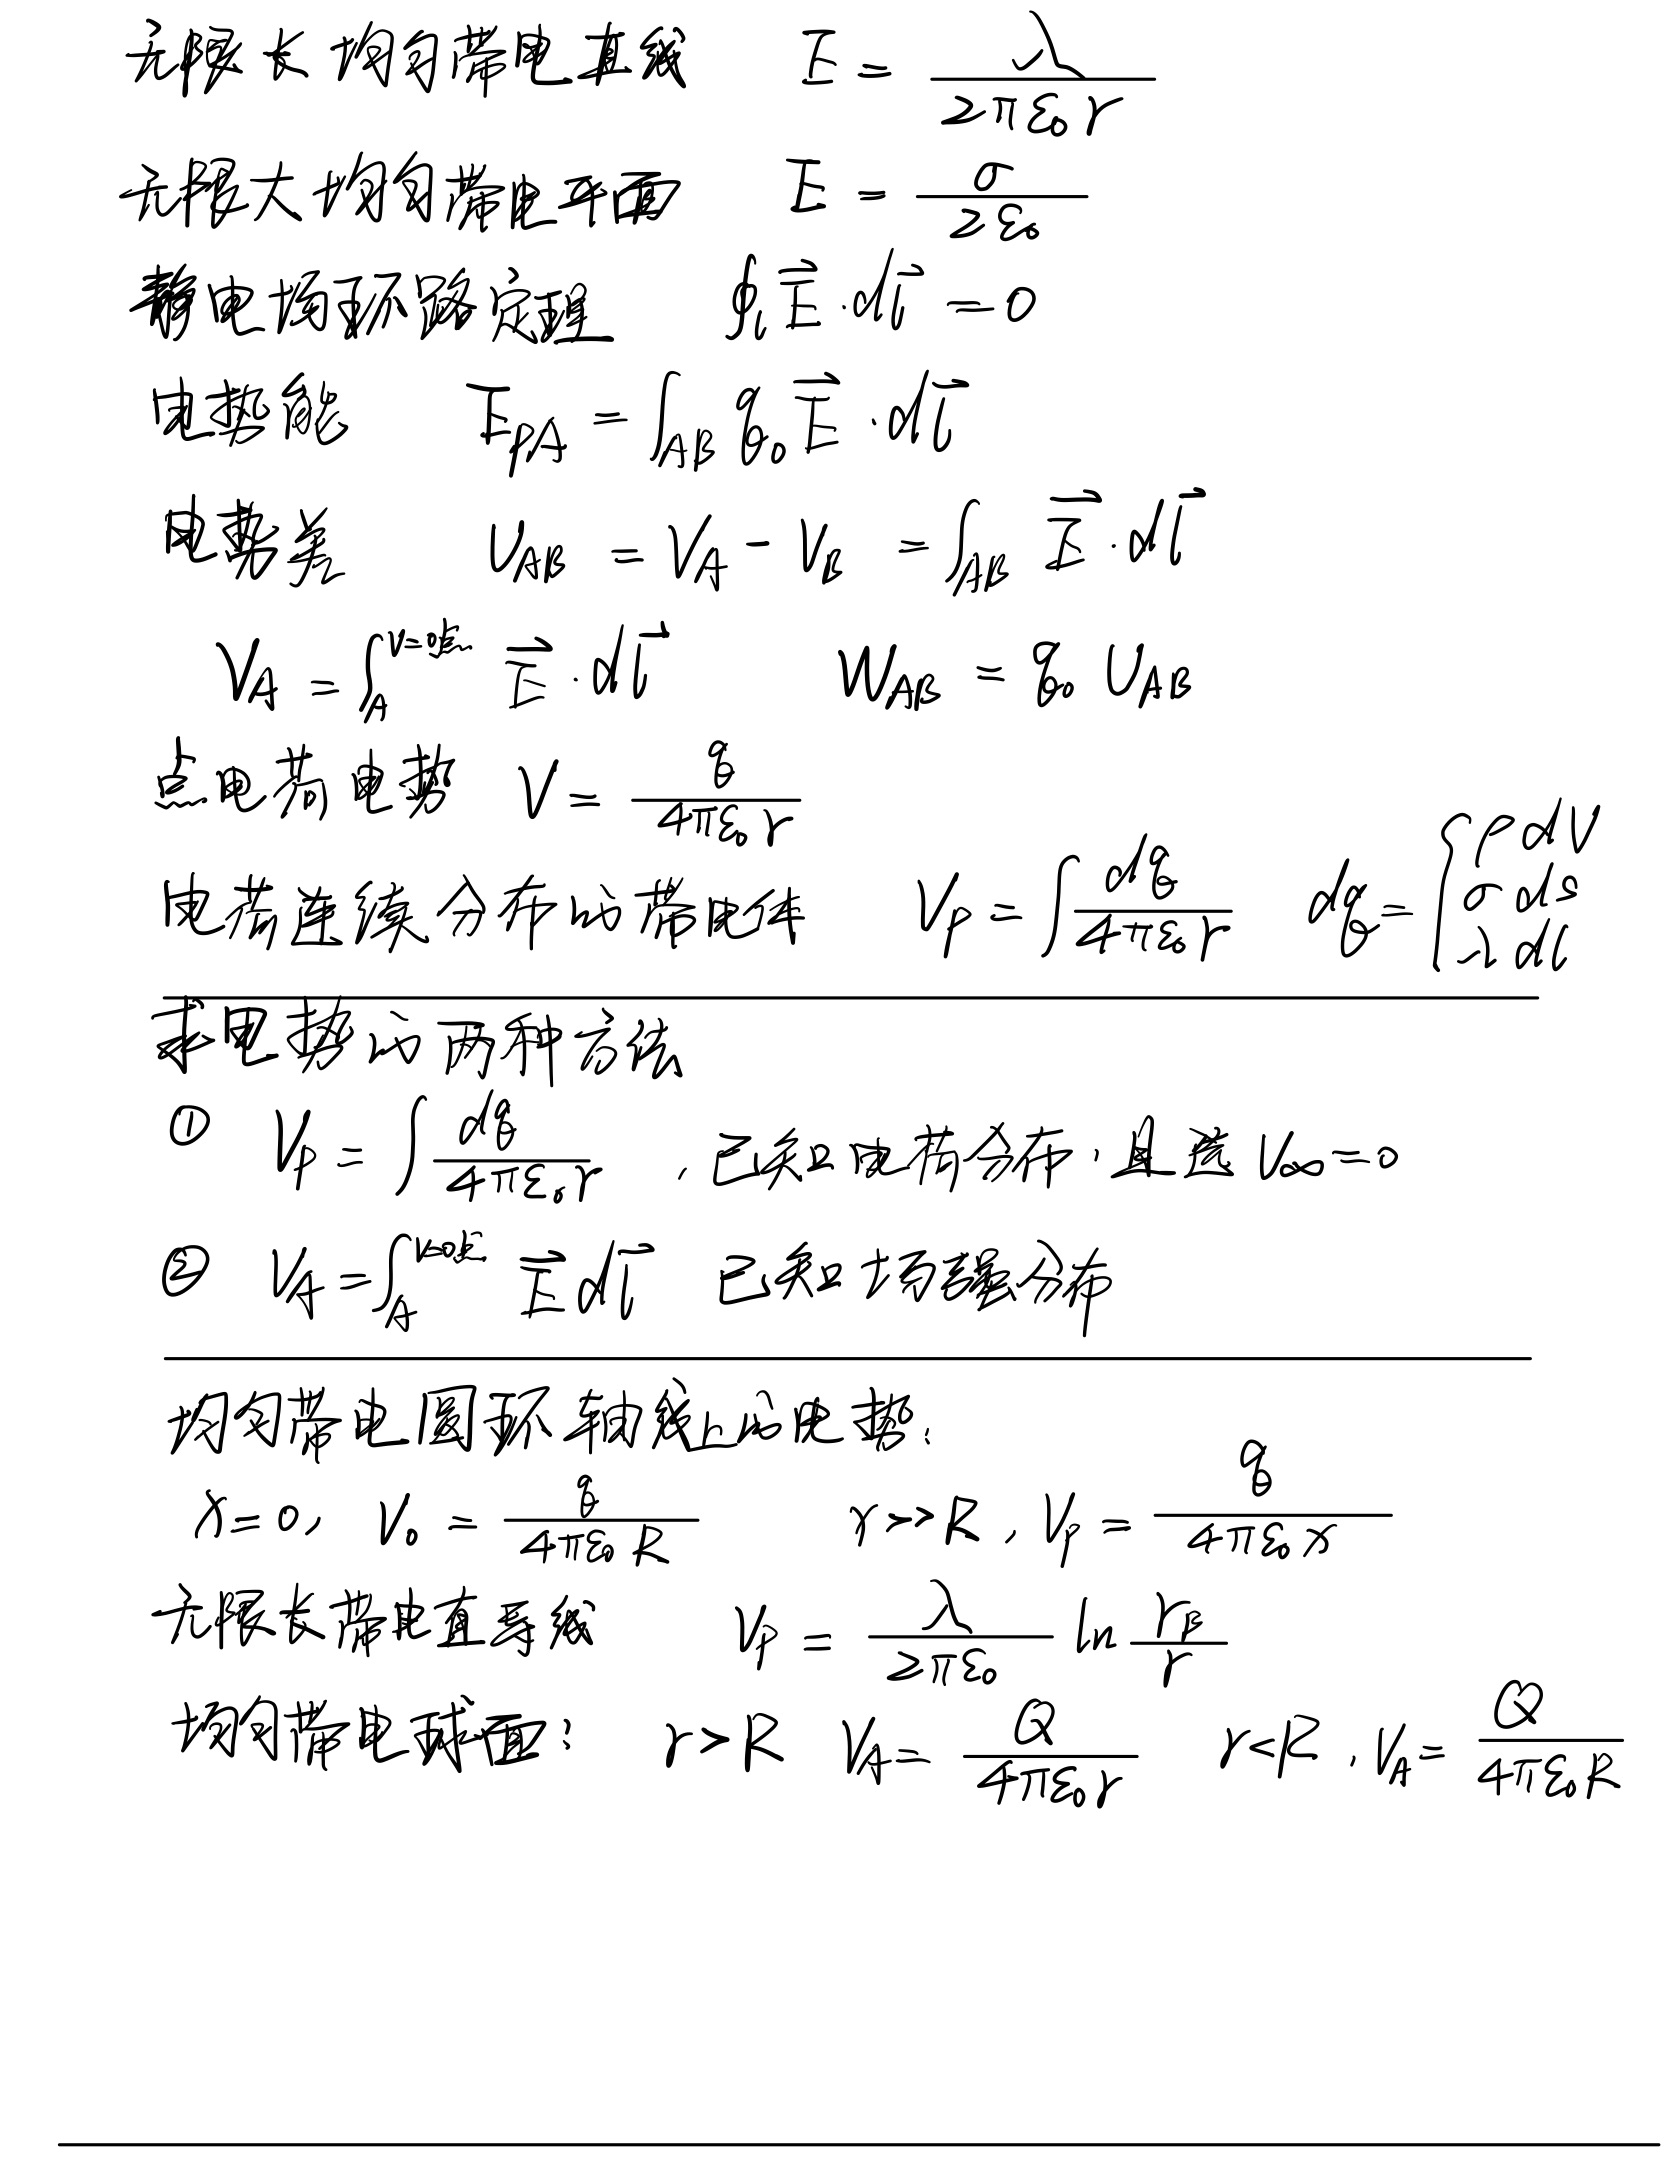 无限长均匀带电直线 E = λ/(2πε₀r)
无限大均匀带电平面 E = σ/(2ε₀)
静电场环路定理 ∮ₗ E⃗·dl⃗ = 0
电势能 E_PA = ∫_AB q₀ E⃗·dl⃗
电势差 U_AB = V_A - V_B = ∫_AB E⃗·dl⃗
V_A = ∫_A^{V=0点} E⃗·dl⃗ W_AB = q₀ U_AB
点电荷电势 V = q/(4πε₀r)
电荷连续分布的带电体 V_P = ∫ dq/(4πε₀r) dq = { ρdV σds λdl
求电势的两种方法
① V_P = ∫ dq/(4πε₀r) , 已知电荷分布, 且选 V∞=0
② V_A = ∫_A^{V=0点} E⃗ dl⃗ 已知场强分布
均匀带电圆环轴线上的电势:
x=0, V₀ = q/(4πε₀R) r>>R, V_P = q/(4πε₀x)
无限长带电直导线 V_P = λ/(2πε₀) ln r_B/r
均匀带电球面: r>R V_A = Q/(4πε₀r) r<R, V_A = Q/(4πε₀R)